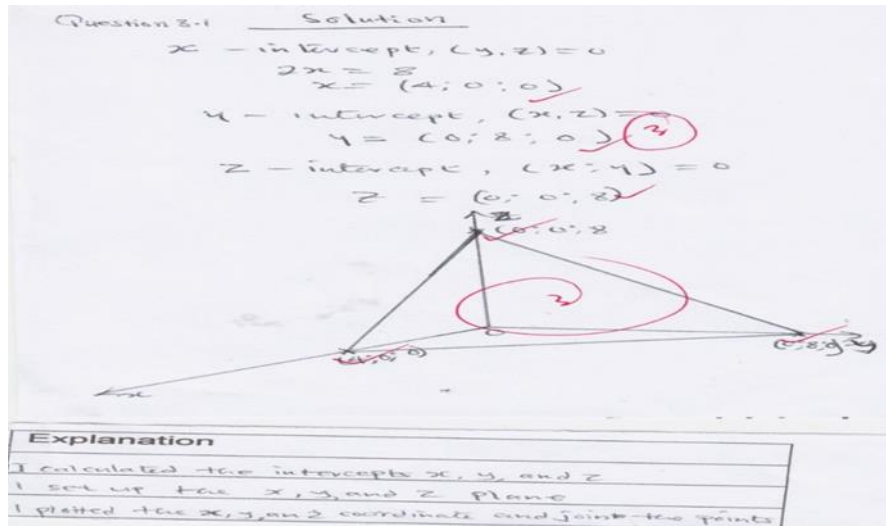 Question 3.1 Solution
x - intercept, (y, z) = 0
2x = 8
x = (4; 0; 0)
y - intercept, (x, z) = 0
y = (0; 8; 0)
z - intercept, (x; y) = 0
z = (0; 0; 8)
z
(0; 0; 8
0
(4; 0; 0)
(0; 8; 0) y
x
Explanation
I calculated the intercepts x, y, and z
I set up the x, y, and z plane
I plotted the x, y, an z coordinate and joint the points